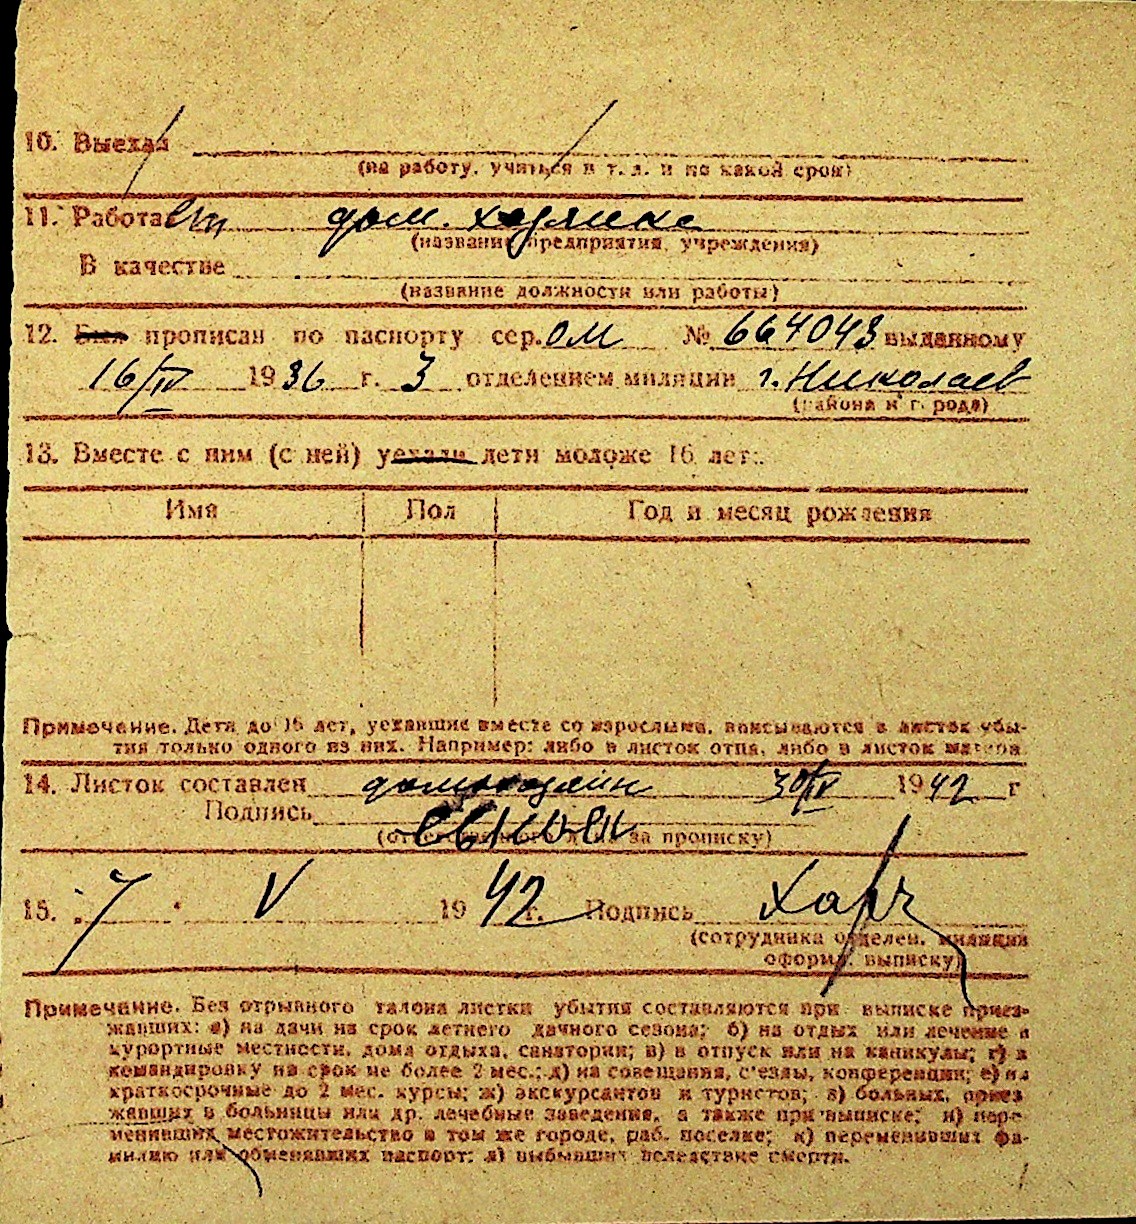 10. Выехал
(на работу, учиться и т. д. и по какой срок)
11. Работает дом. хозяйка
(название предприятия, учреждения)
В качестве
(название должности или работы)
12. Был прописан по паспорту сер. ОМ № 664043 выданному
16/IV 1936 г. 3 отделением милиции г. Николаев
(района и города)
13. Вместе с ним (с ней) уехали дети моложе 16 лет:
Имя Пол Год и месяц рождения
Примечание. Дети до 16 лет, уехавшие вместе со взрослыми, вписываются в листок убы-
тия только одного из них. Например: либо в листок отца, либо в листок матери.
14. Листок составлен 30/IV 1942 г
Подпись
(ответственного лица за прописку)
15. 7 V 1942 г. Подпись
(сотрудника отделен. милиции
оформ. выписку)
Примечание. Без отрывного талона листки убытия составляются при выписке приез-
жавших: а) на дачи на срок летнего дачного сезона; б) на отдых или лечение в
курортные местности, дома отдыха, санатории; в) в отпуск или на каникулы; г) в
командировку на срок не более 2 мес.; д) на совещания, с'езды, конференции; е) на
краткосрочные до 2 мес. курсы; ж) экскурсантов и туристов; з) больных, приез
жавших в больницы или др. лечебные заведения, а также при выписке; и) пере-
менивших местожительство в том же городе, раб. поселке; к) переменивших фа-
милию или обменявших паспорт; л) выбывших вследствие смерти.